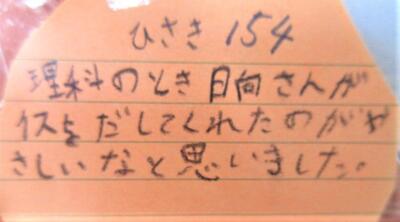 ひさき 154
理科のとき日向さんが
イスをだしてくれたのがや
さしいなと思いました。